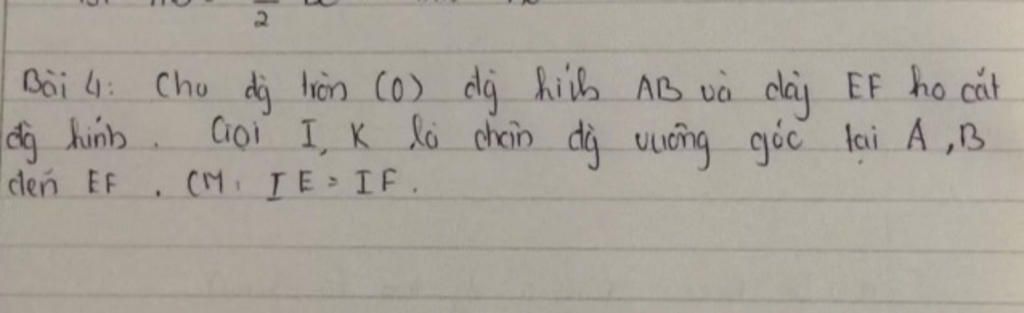 2
Bài 4: Cho đg tròn (O) đg kính AB và dây EF ko cắt
đg kính. Gọi I, K là chân đg vuông góc tại A, B
đến EF. CM: IE = IF.